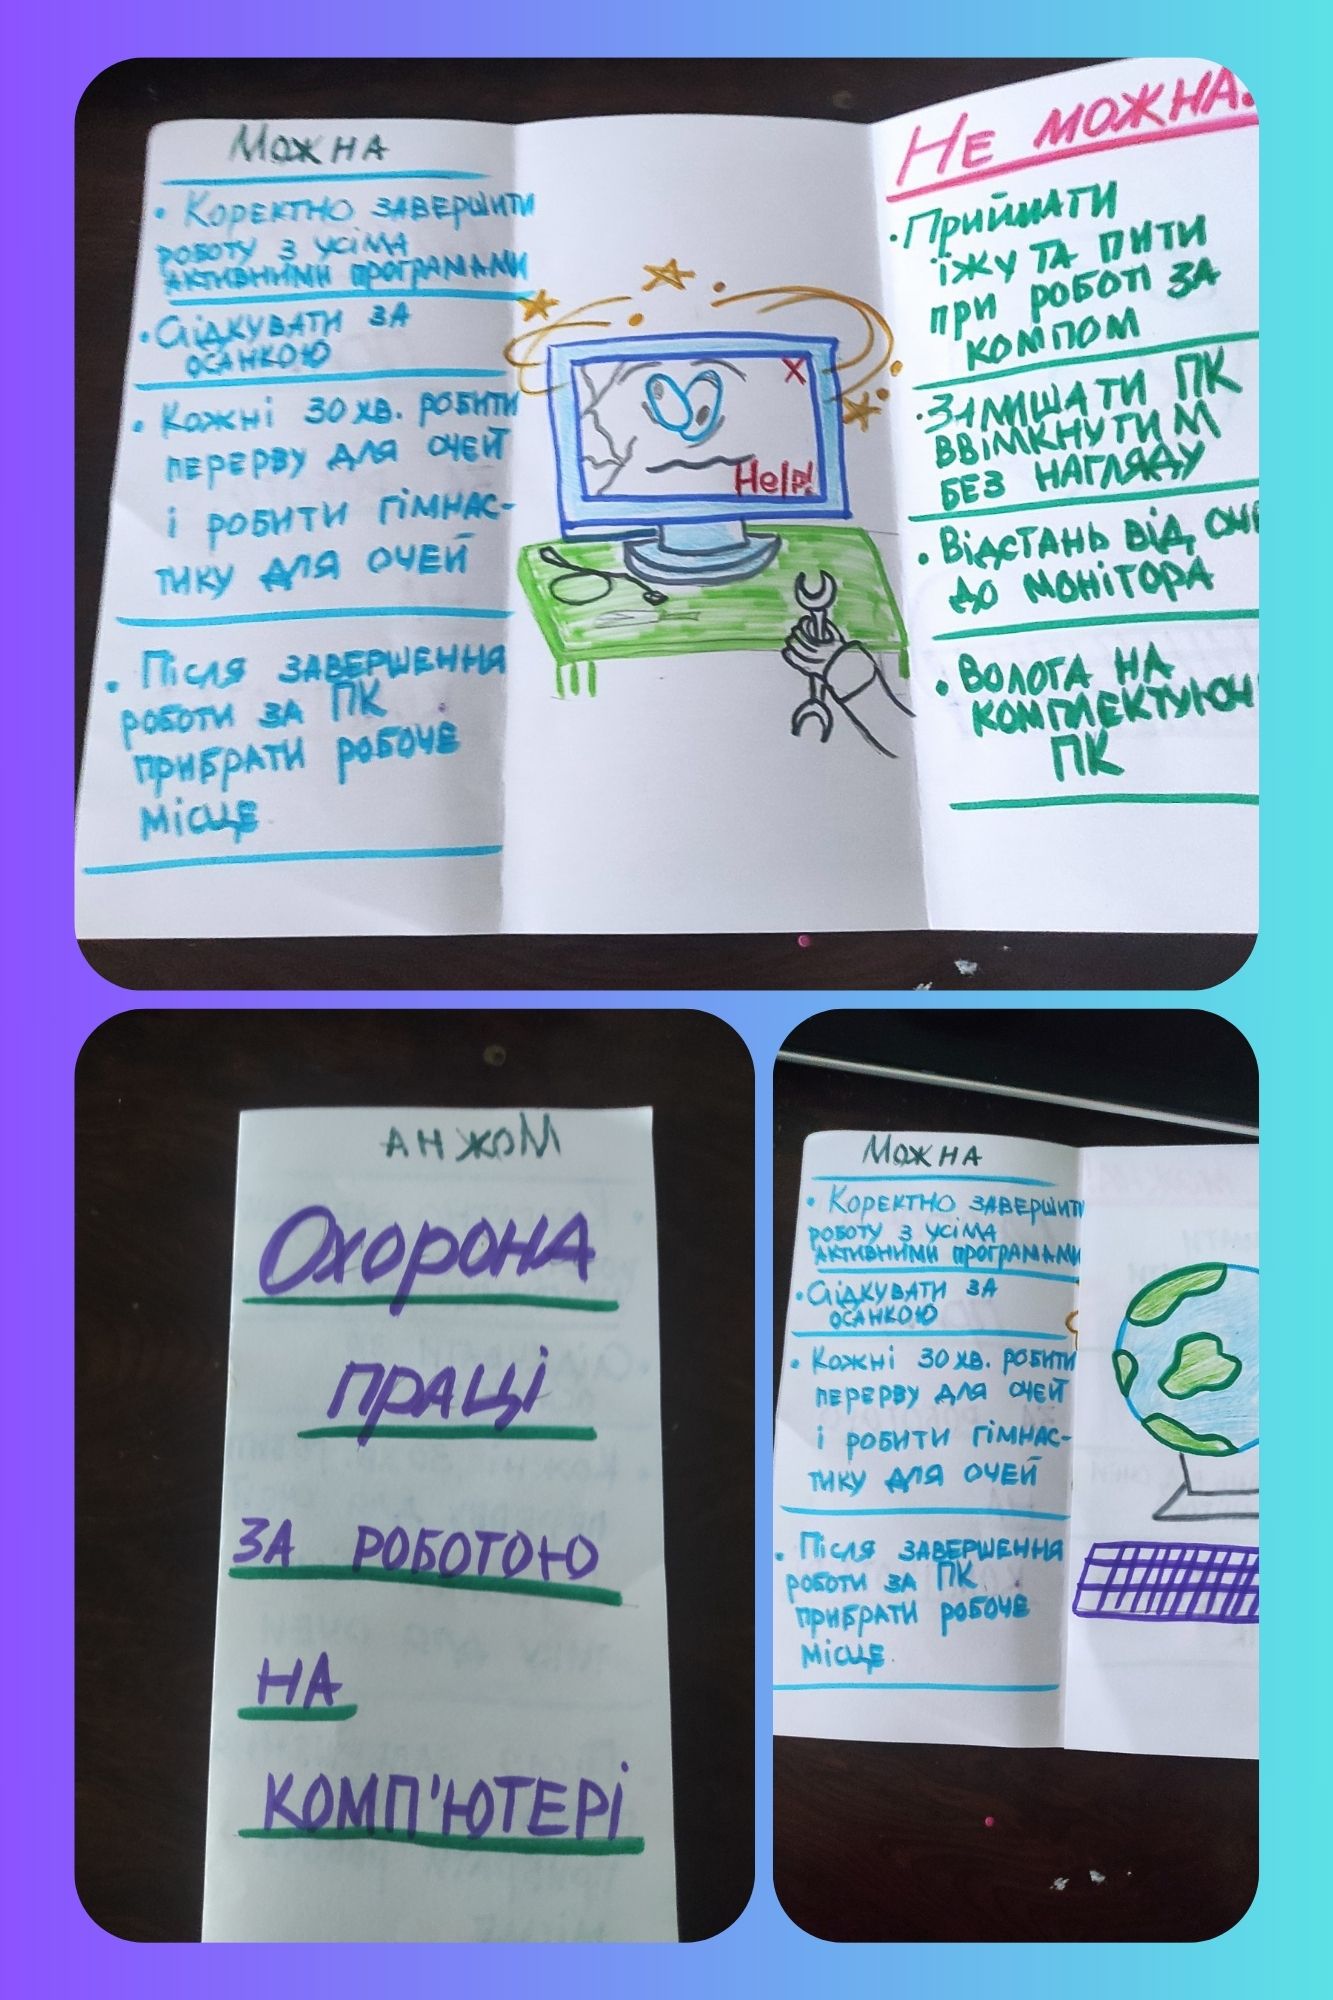 Можна
• Коректно завершити
роботу з усіма
активними програмами
• Слідкувати за
осанкою
• Кожні 30 хв. робити
перерву для очей
і робити гімнас-
тику для очей
• Після завершення
роботи за ПК
прибрати робоче
місце
X
Help!
Не можна.
• Приймати
їжу та пити
при роботі за
компом
• Залишати ПК
ввімкнутим
без нагляду
• Відстань від
до монітора
• Волога на
ПК
Можна
Охорона
праці
за роботою
на
комп'ютері
Можна
• Коректно завершити
роботу з усіма
активними програмами
• Слідкувати за
осанкою
• Кожні 30 хв. робити
перерву для очей
і робити гімнас-
тику для очей
• Після завершення
роботи за ПК
прибрати робоче
місце